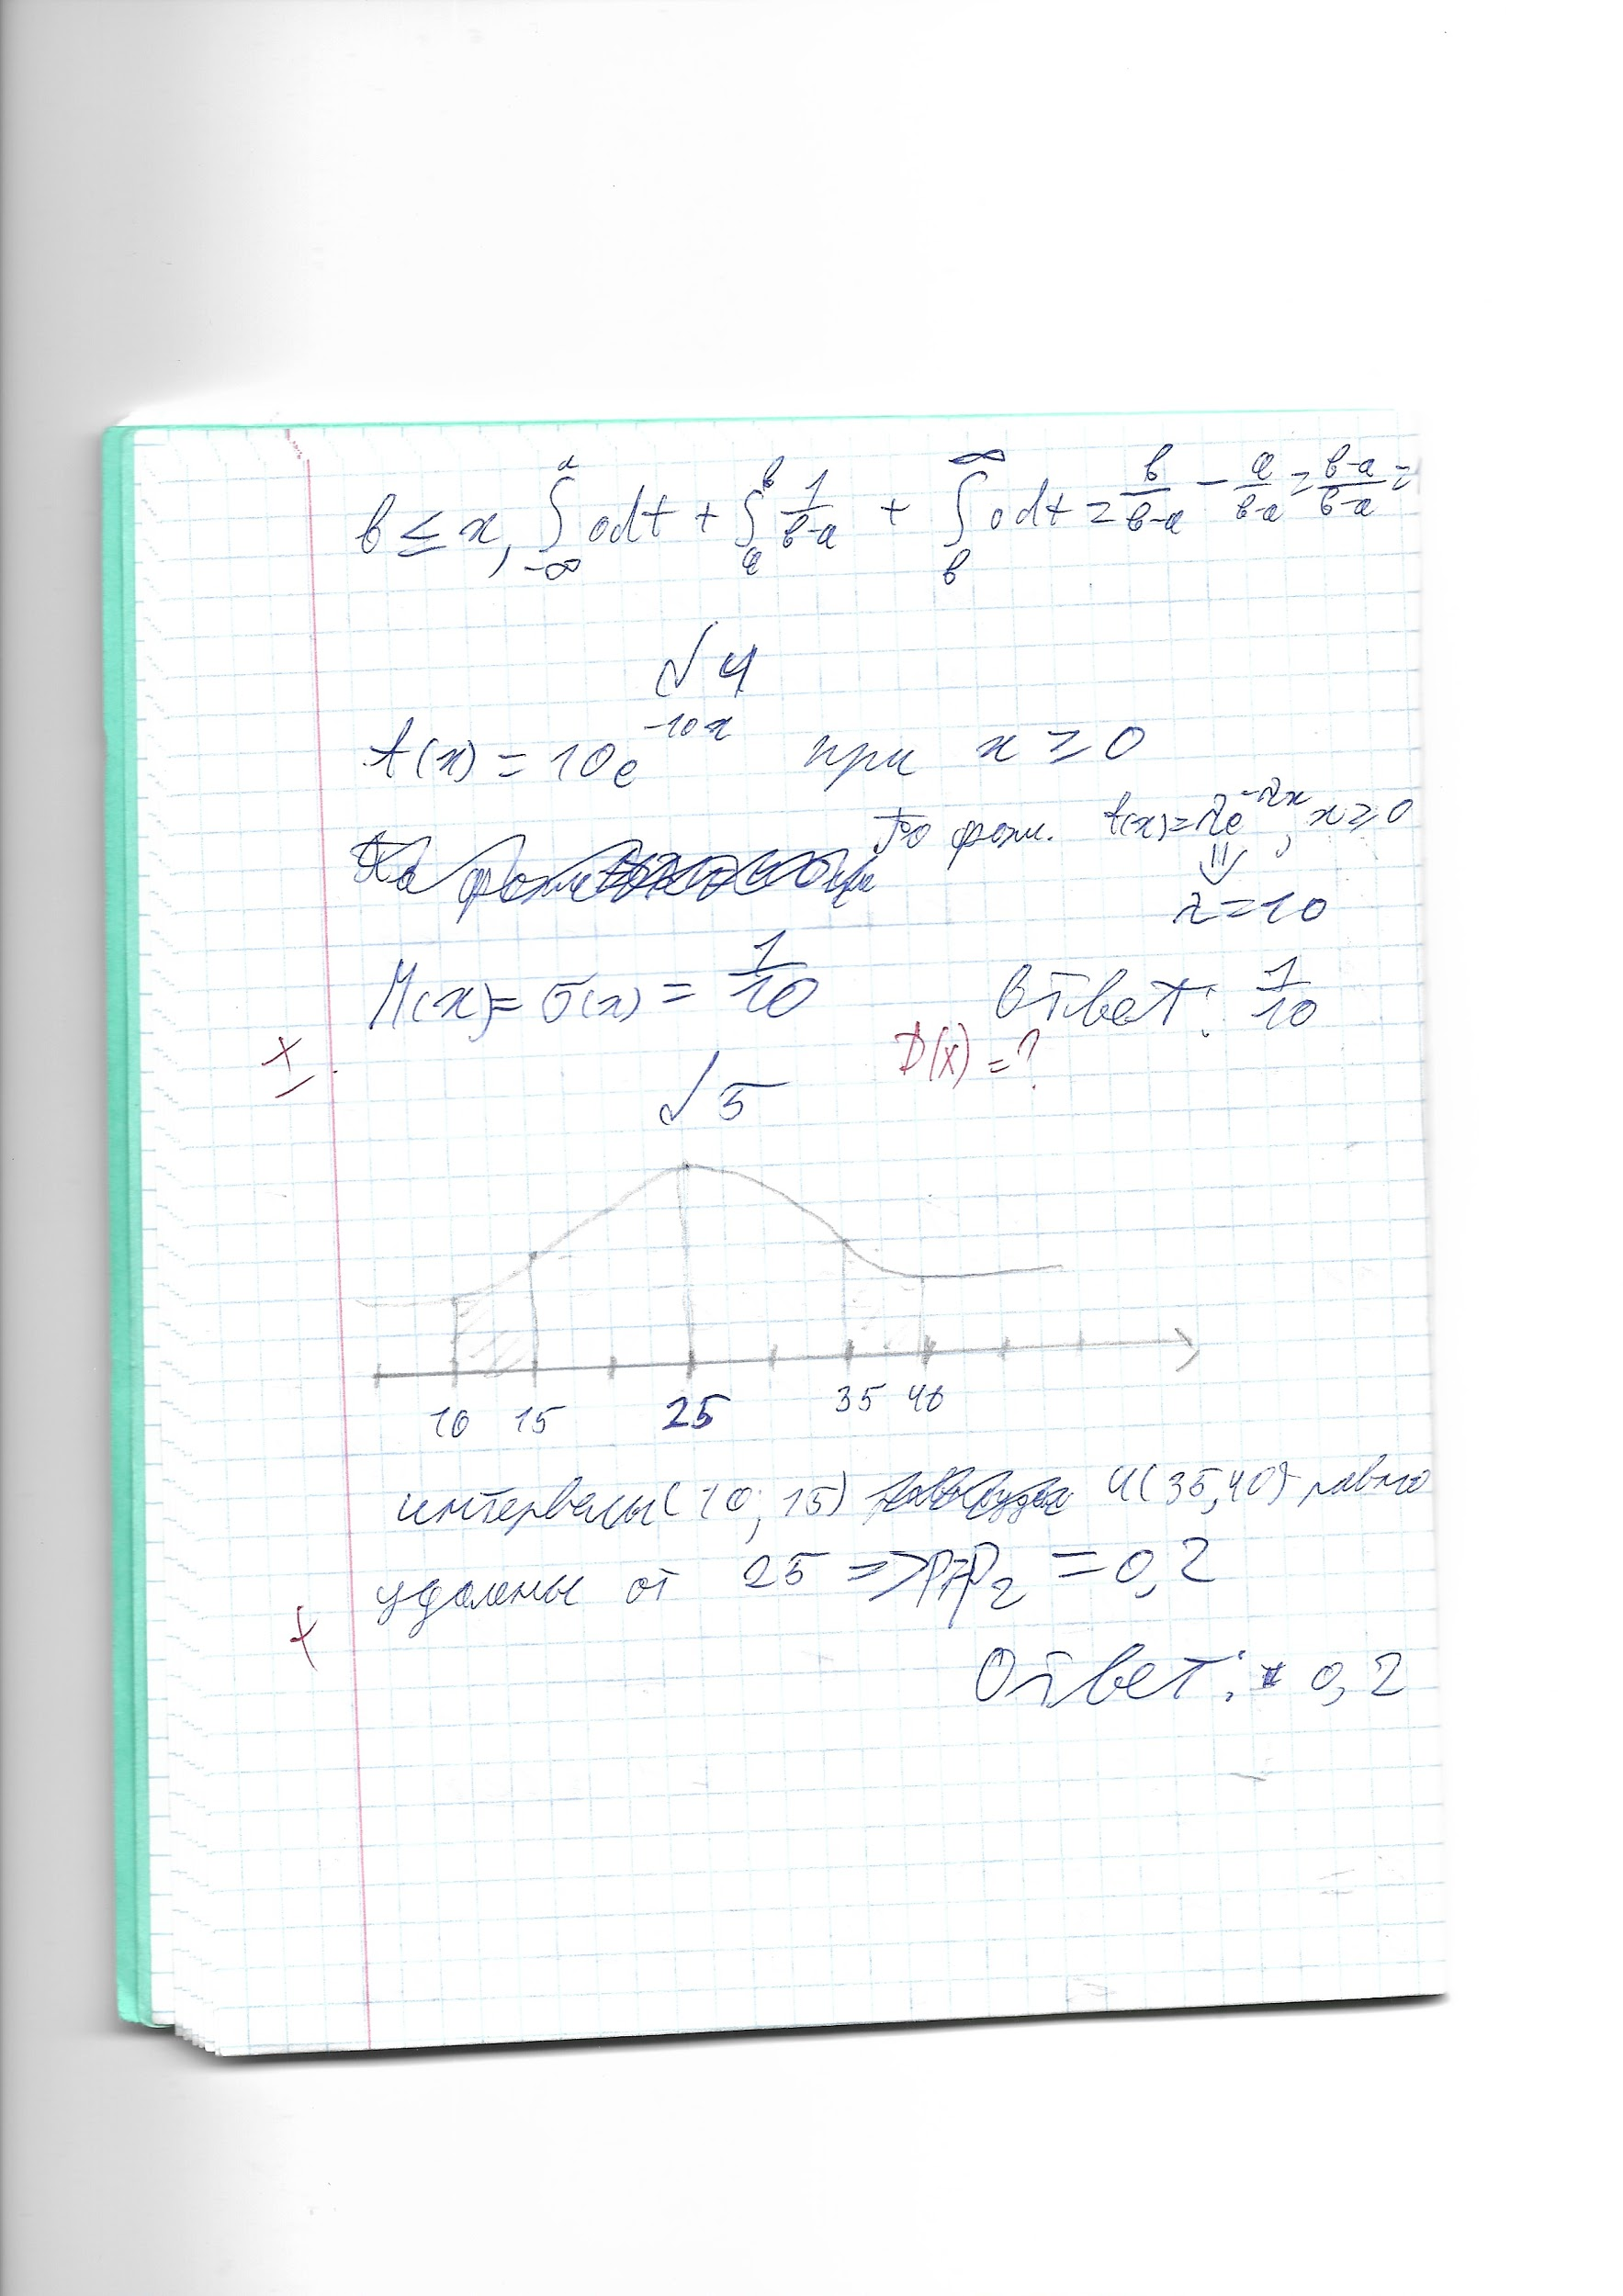 b ≤ x, ∫_{-∞}^{a} 0dt + ∫_{a}^{b} 1/(b-a) + ∫_{b}^{∞} 0dt = b/(b-a) - a/(b-a) = (b-a)/(b-a) =
№4
f(x) = 10e^{-10x} при x ≥ 0
По форм. f(x)=λe^{-λx}, x≥0
⇓
λ=10
M(x)=σ(x) = 1/10 Ответ: 1/10
± D(x)=?
№5
10 15 25 35 40
интервалы (10; 15) и (35,40) равно
удалены от 25 => P₁=P₂ = 0,2
+
Ответ: 0,2